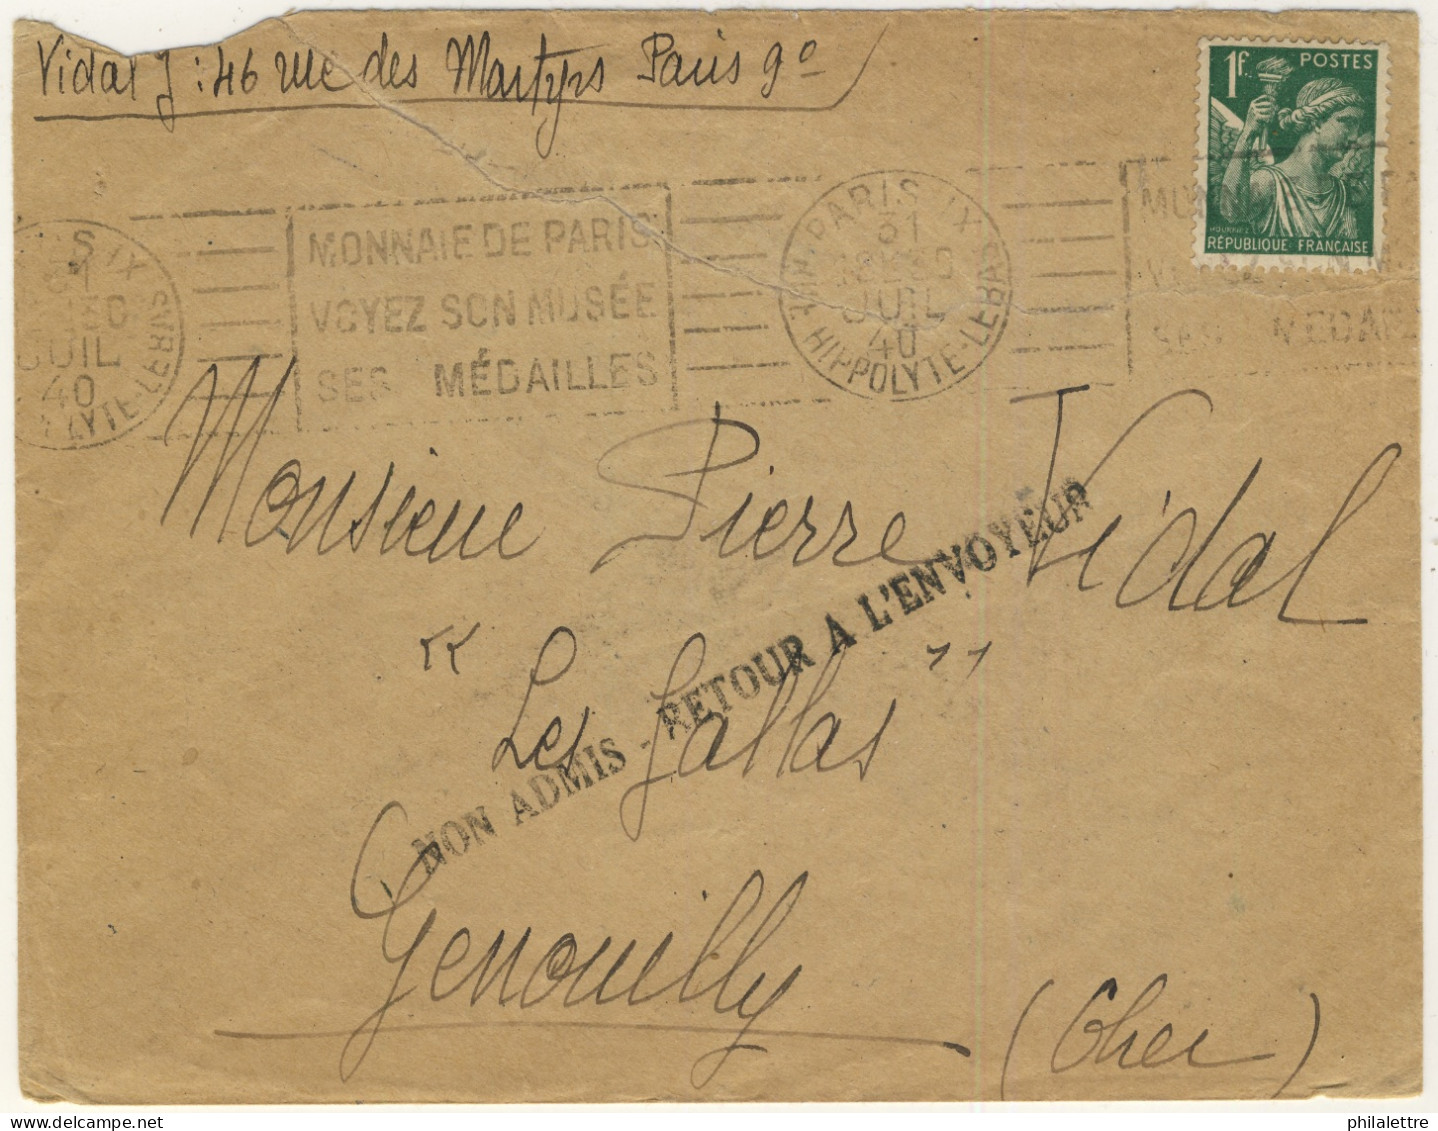 Vidal J : 46 rue des Martyrs Paris 9º
1f. POSTES
HOURRIEZ
RÉPUBLIQUE FRANÇAISE
PARIS IX
31
JUIL
40
HIPPOLYTE-LEBAS
MONNAIE DE PARIS
VOYEZ SON MUSÉE
SES MÉDAILLES
IX
JUIL
40
LYTE-LEBAS
Monsieur Pierre Vidal
" Les Gallas "
NON ADMIS - RETOUR A L'ENVOYEUR
Genouilly
(Cher)
philalettre